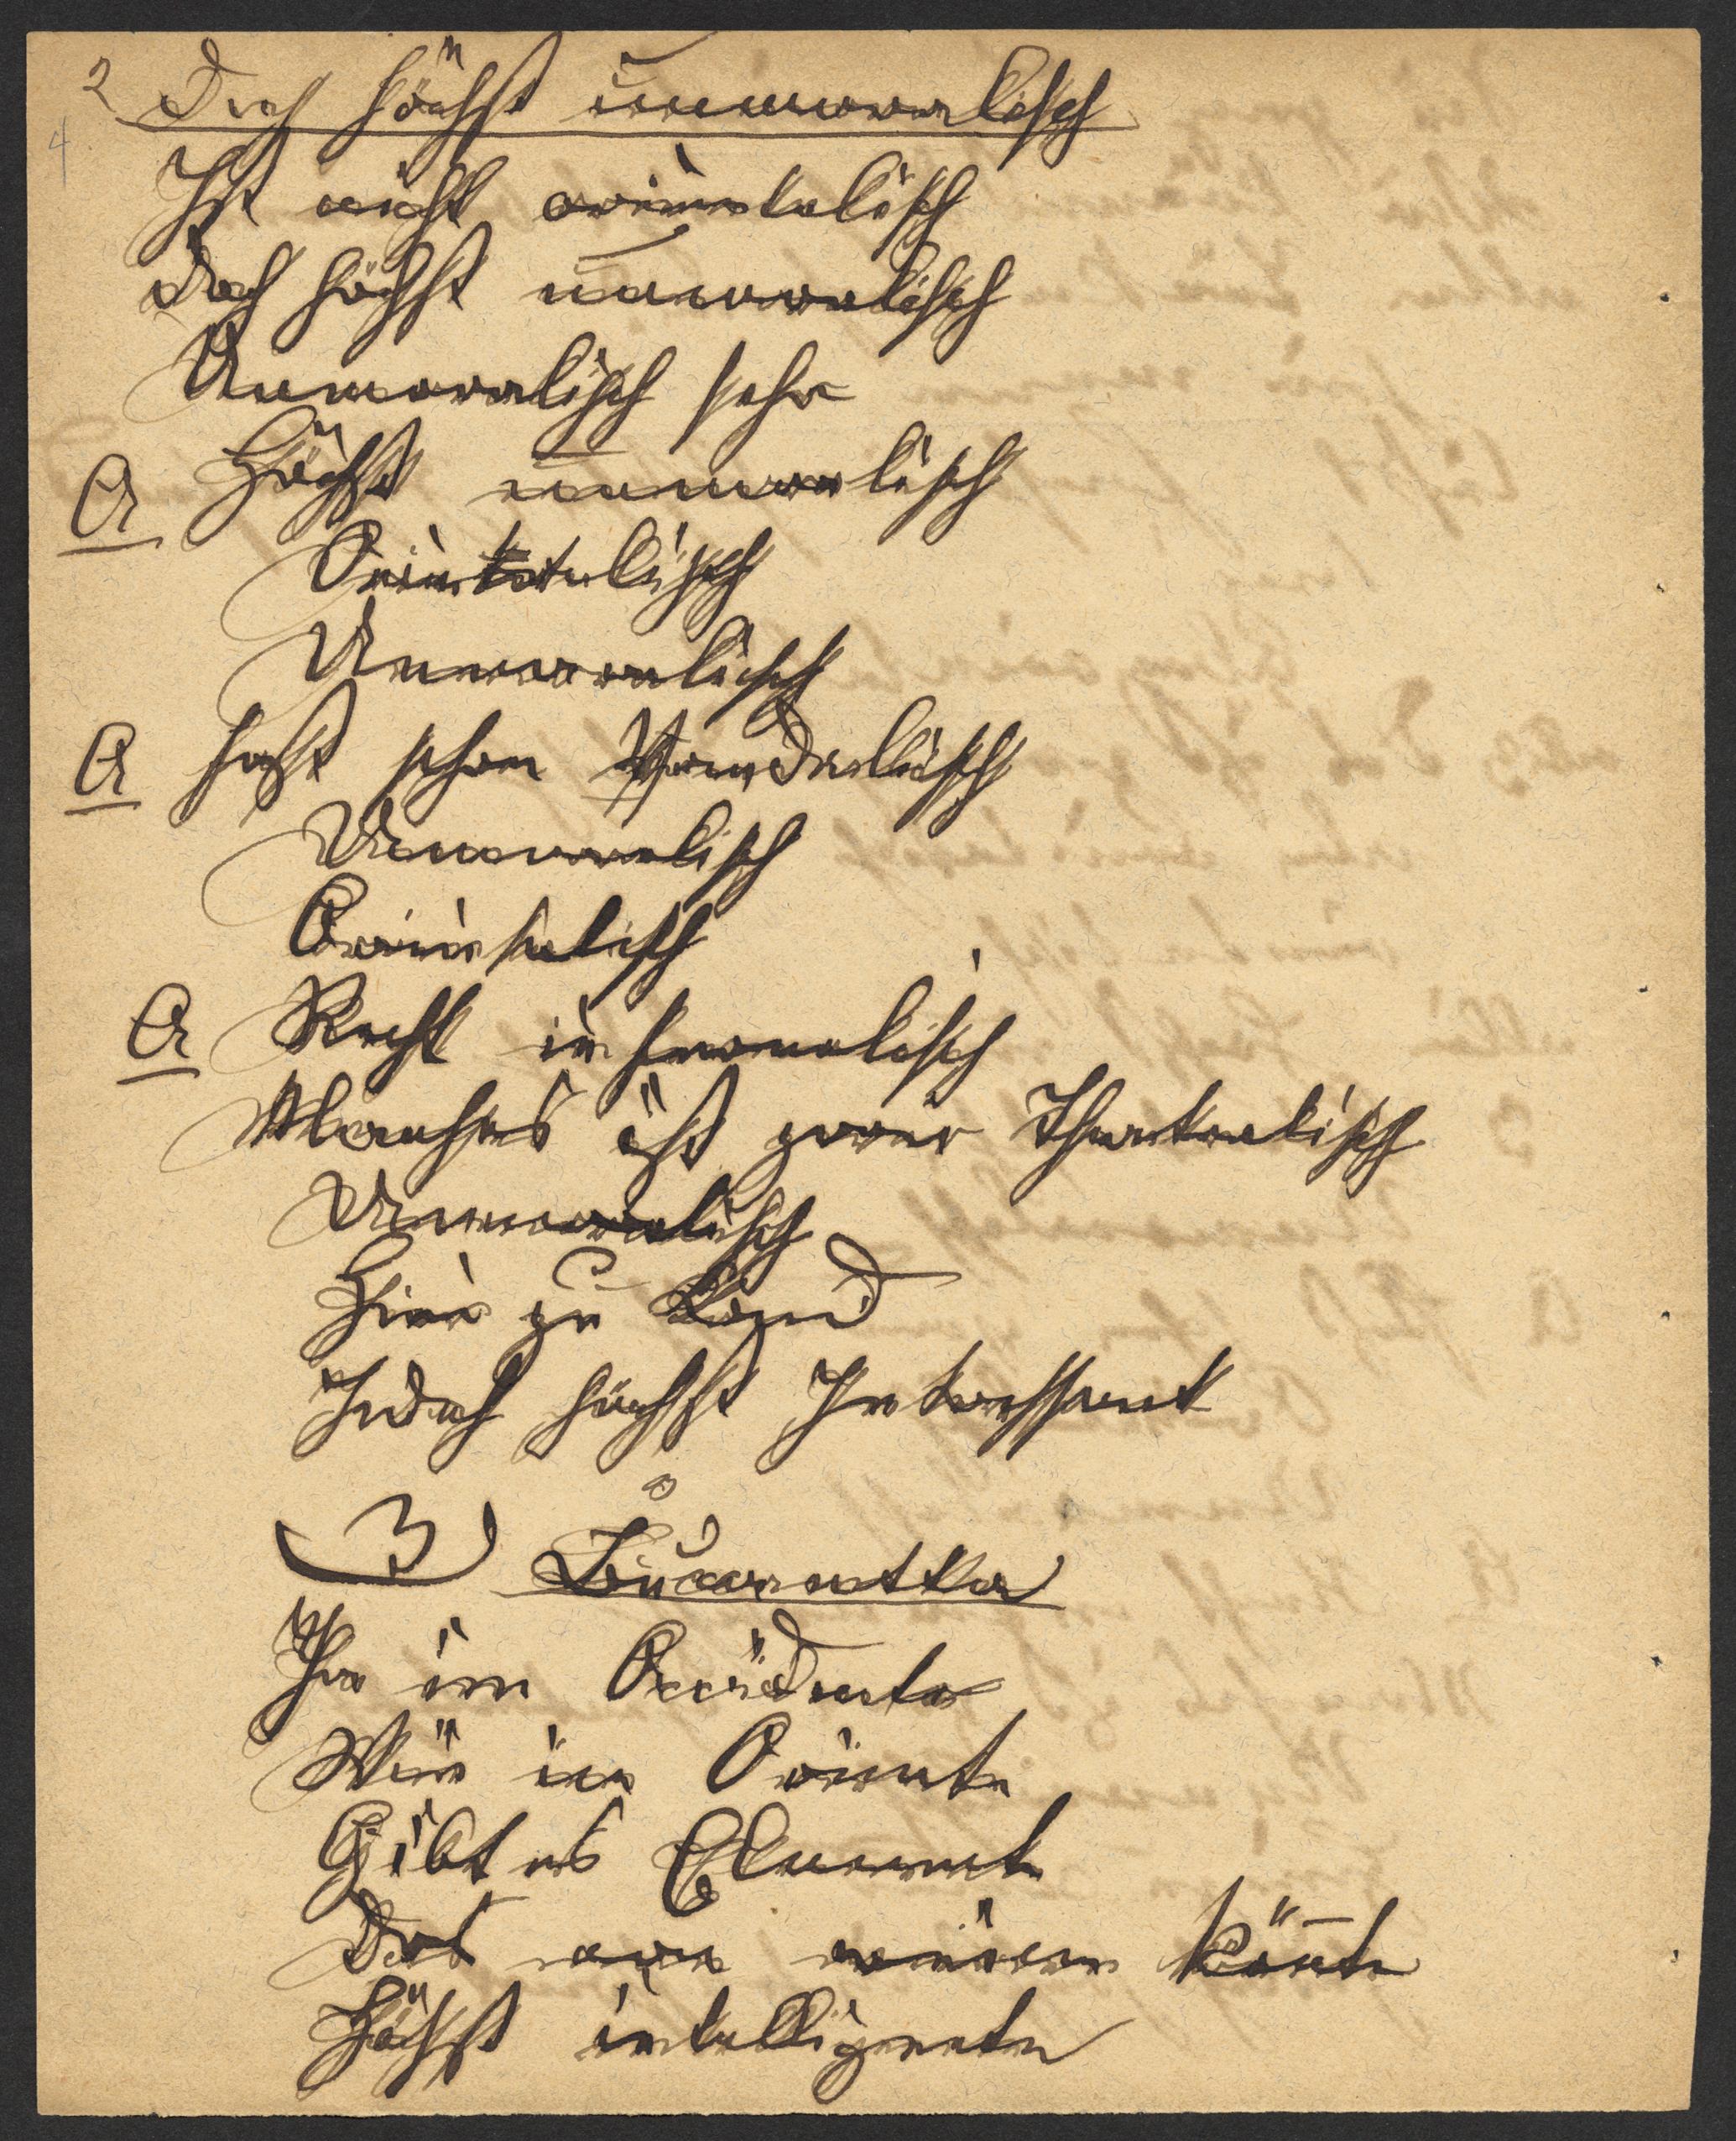 2 Doch höchst unmoralisch
4
Ist nicht orientalisch
Doch höchst unmoralisch
Unmoralisch sehr
A Höchst unmoralisch
Orientalisch
Unmoralisch
A Fast schon Vandalisch
Unmoralisch
Orientalisch
A Recht infernalisch
Manches ist zwar Theatralisch
Unmoralisch
Hier zu Land
Jedoch höchst Interessant
3)
Ja im Occidente
Wie im Oriente
Gibt es Elemente
Das man nennen könnte
Höchst intelligente